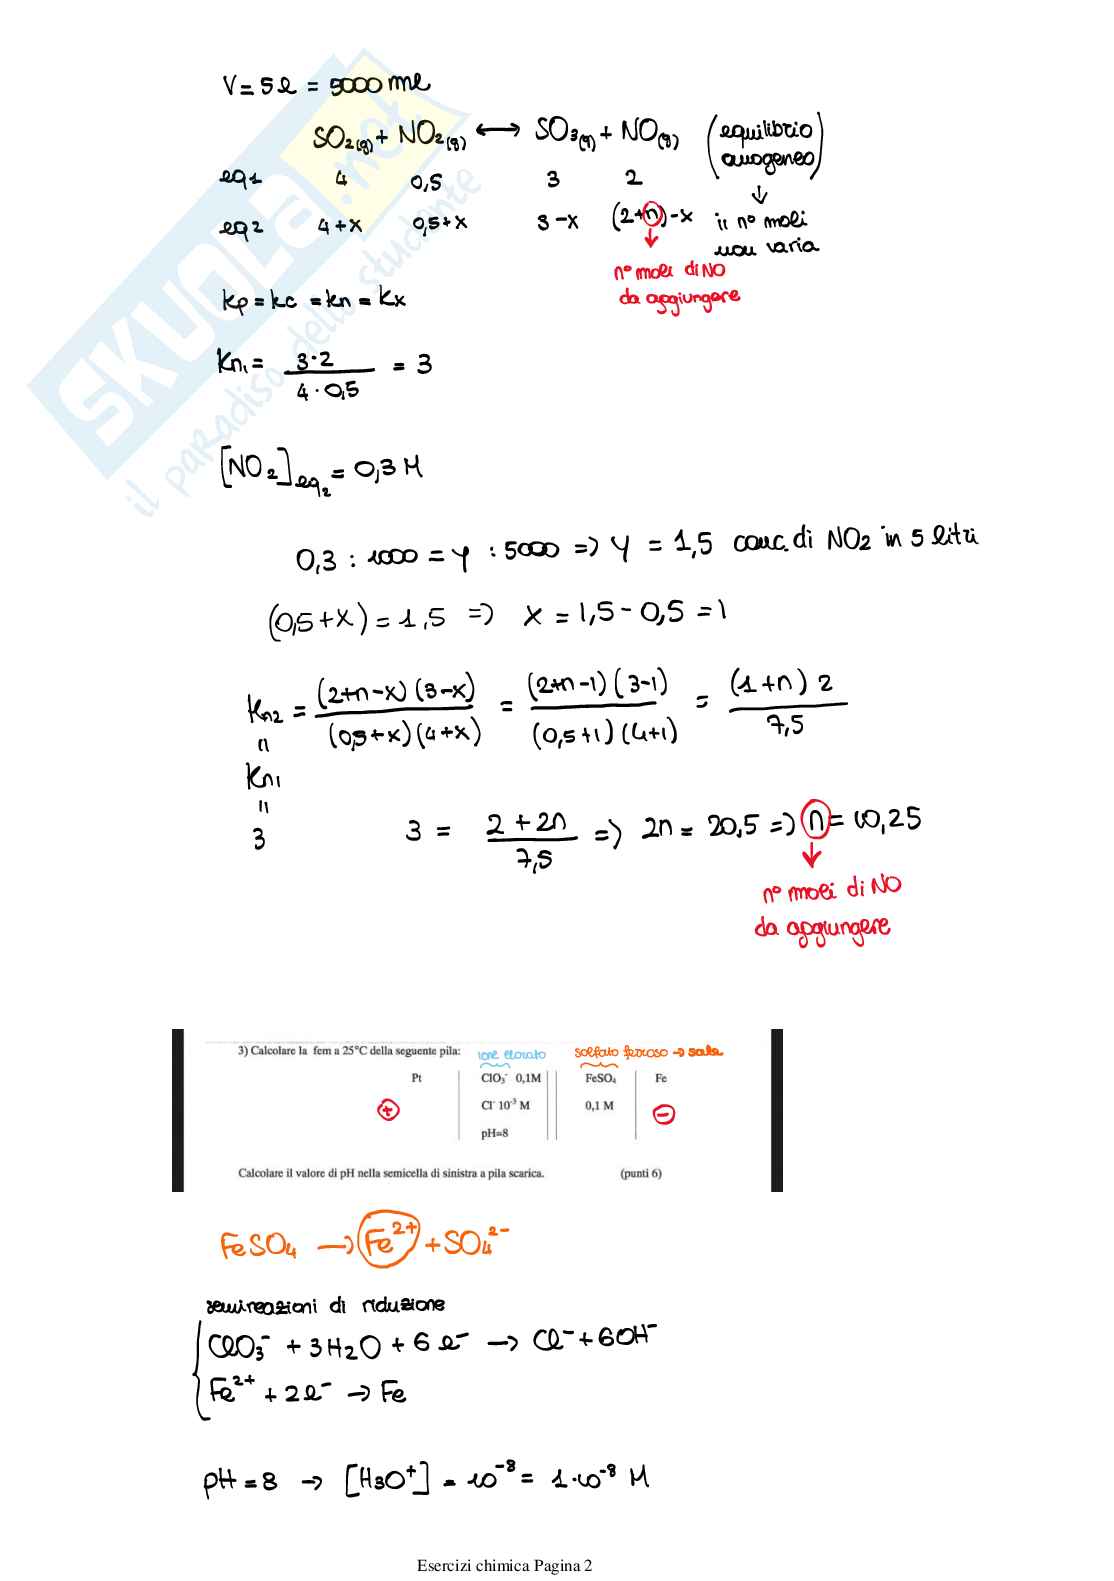 SKUOLA.net
il paradiso dello studente
V = 5 l = 5000 ml
SO2(g) + NO2(g) ⟷ SO3(g) + NO(g) (equilibrio omogeneo)
eq1 4 0,5 3 2 ↓
eq2 4+x 0,5+x 3-x (2+n)-x il n° moli non varia
↓
n° moli di NO
da aggiungere
kp = kc = kn = kx
Kn1 = 3·2 / 4·0,5 = 3
[NO2]eq2 = 0,3 M
0,3 : 1000 = y : 5000 => y = 1,5 conc. di NO2 in 5 litri
(0,5+x) = 1,5 => x = 1,5 - 0,5 = 1
Kn2 = (2+n-x)(3-x) / (0,5+x)(4+x) = (2+n-1)(3-1) / (0,5+1)(4+1) = (1+n) 2 / 7,5
=
Kn1
=
3 3 = 2+2n / 7,5 => 2n = 20,5 => n = 10,25
↓
n° moli di NO
da aggiungere
3) Calcolare la fem a 25°C della seguente pila: ione clorato solfato ferroso → sale
Pt ClO3- 0,1M FeSO4 Fe
+ Cl- 10-3 M 0,1 M −
pH=8
Calcolare il valore di pH nella semicella di sinistra a pila scarica. (punti 6)
FeSO4 → Fe2+ + SO42-
semireazioni di riduzione
ClO3- + 3H2O + 6e- → Cl- + 6OH-
Fe2+ + 2e- → Fe
pH = 8 → [H3O+] = 10-8 = 1·10-8 M
Esercizi chimica Pagina 2